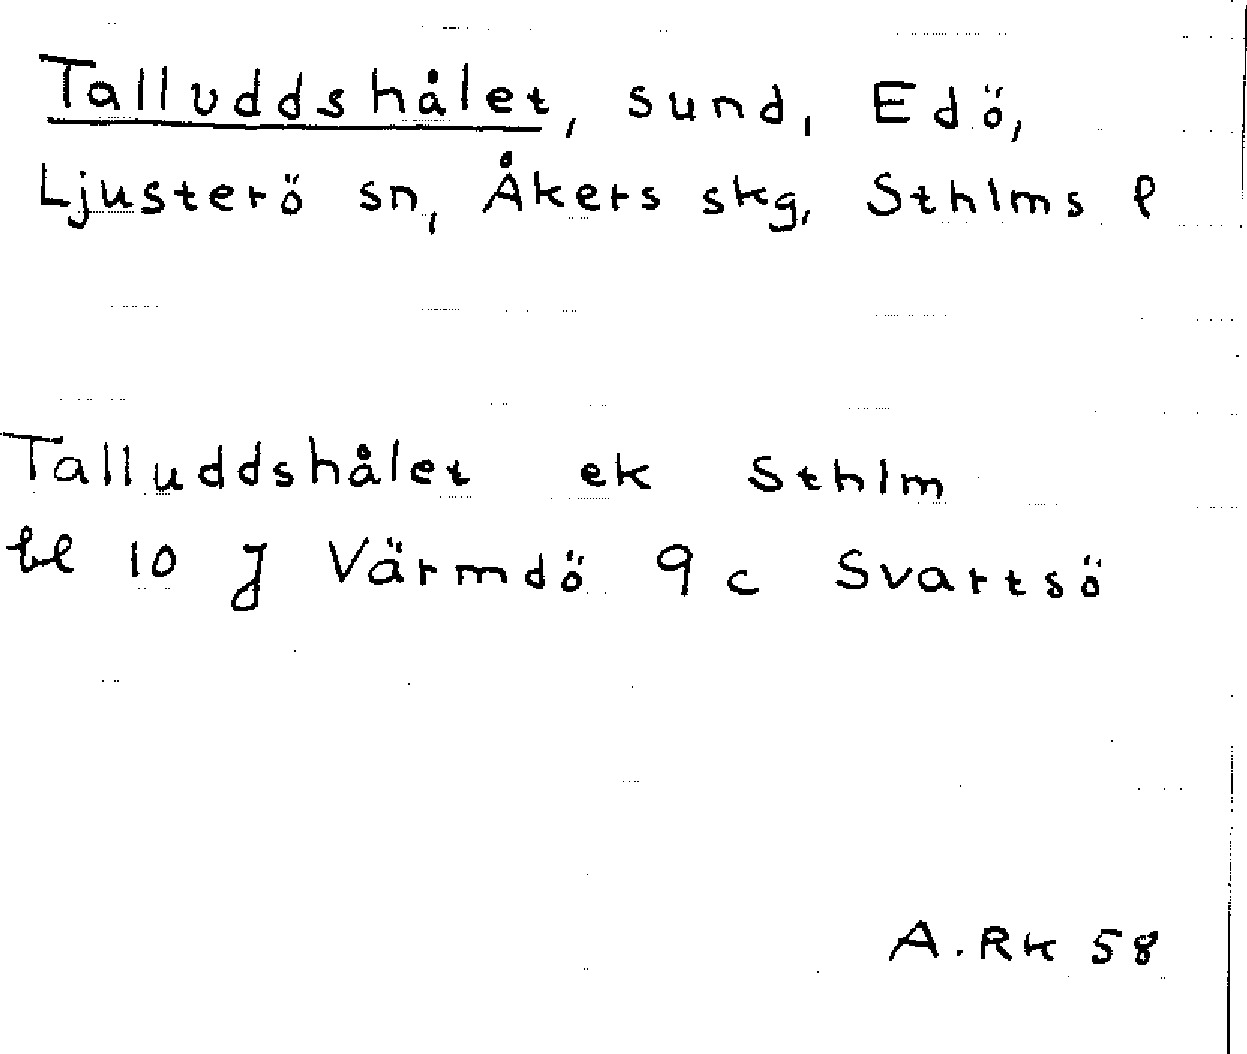 Talluddshålet, sund, Edö,
Ljusterö sn, Åkers skg, Sthlms l
Talluddshålet ek Sthlm
bl 10 J Värmdö 9 c Svartsö
A. Rk 58